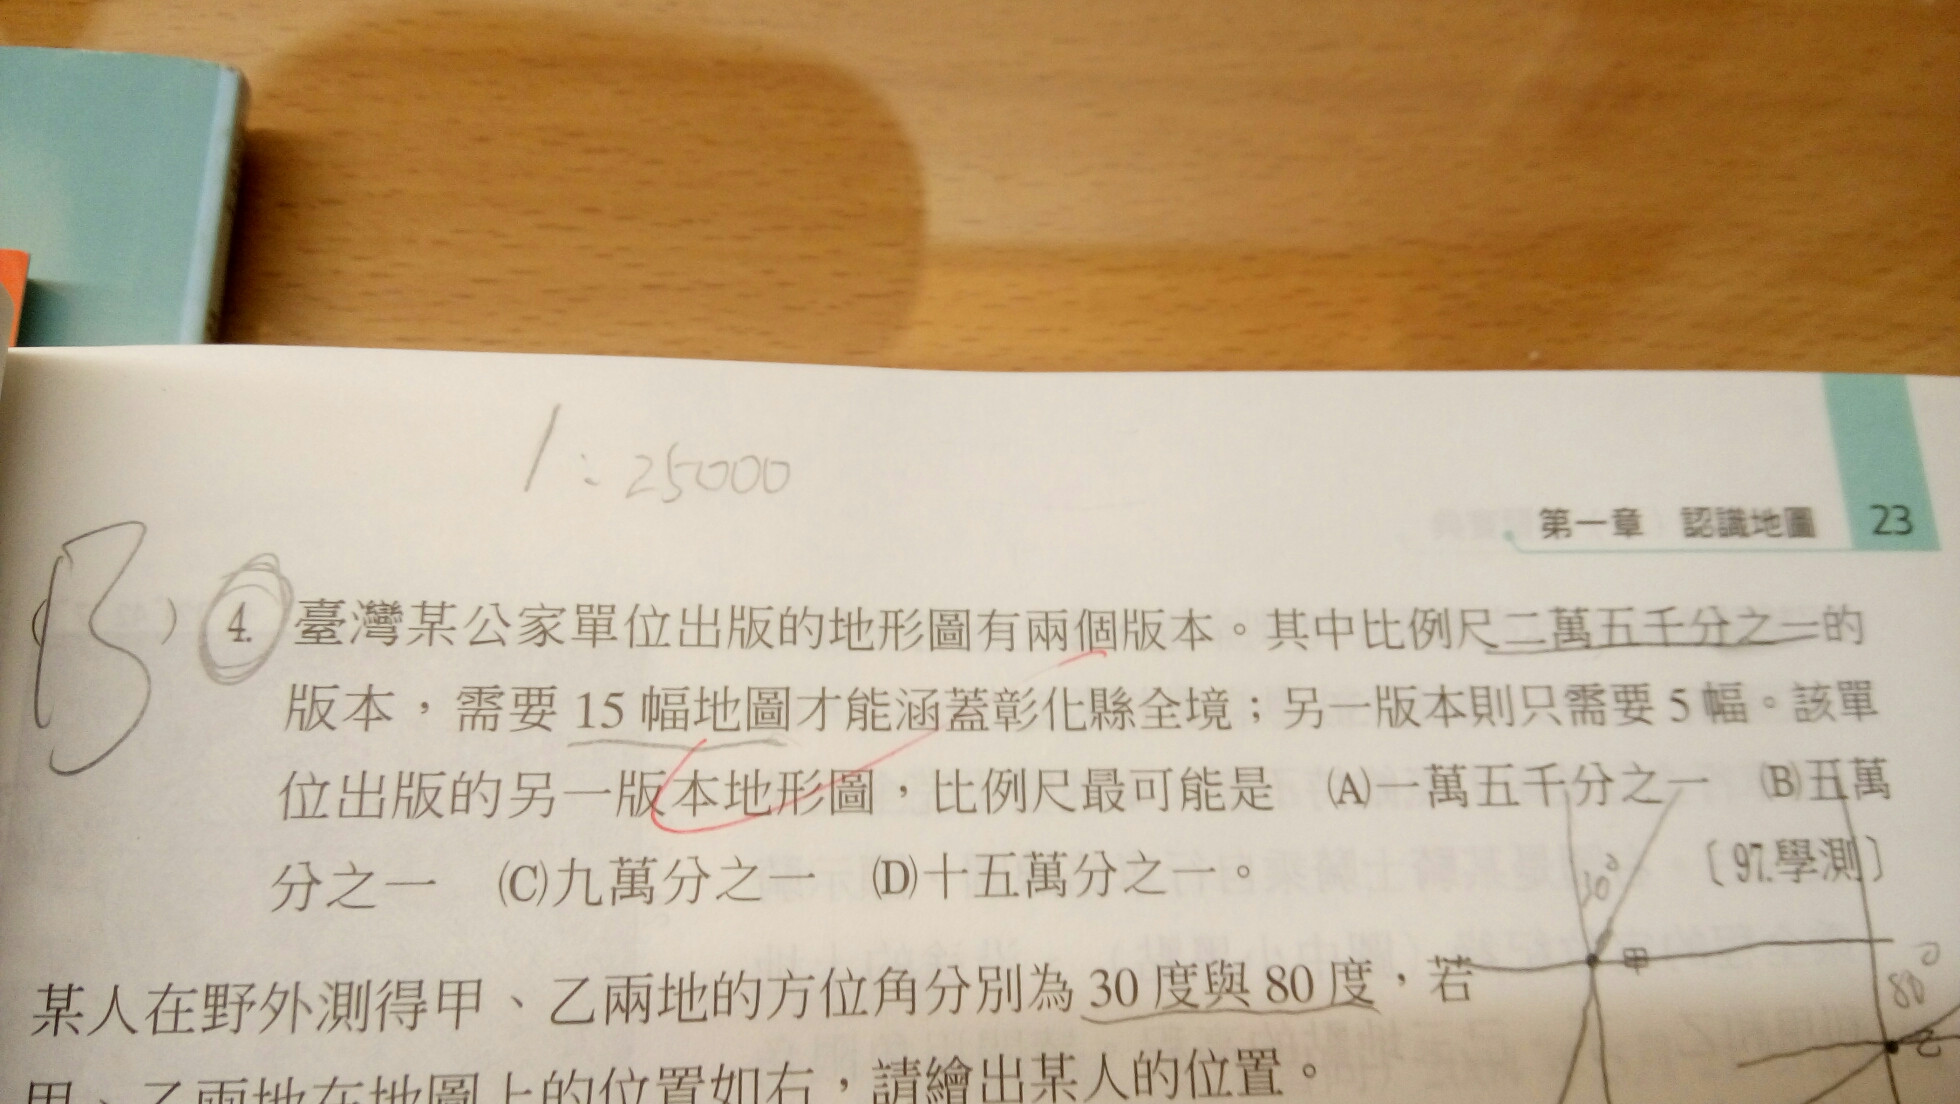 1:25000
第一章 認識地圖 23
(B) 4. 臺灣某公家單位出版的地形圖有兩個版本。其中比例尺二萬五千分之一的
版本，需要 15 幅地圖才能涵蓋彰化縣全境；另一版本則只需要 5 幅。該單
位出版的另一版本地形圖，比例尺最可能是 (A)一萬五千分之一 (B)五萬
分之一 (C)九萬分之一 (D)十五萬分之一。 〔97.學測〕
30°
甲
某人在野外測得甲、乙兩地的方位角分別為 30 度與 80 度，若
80°
乙
甲、乙兩地在地圖上的位置如右，請繪出某人的位置。